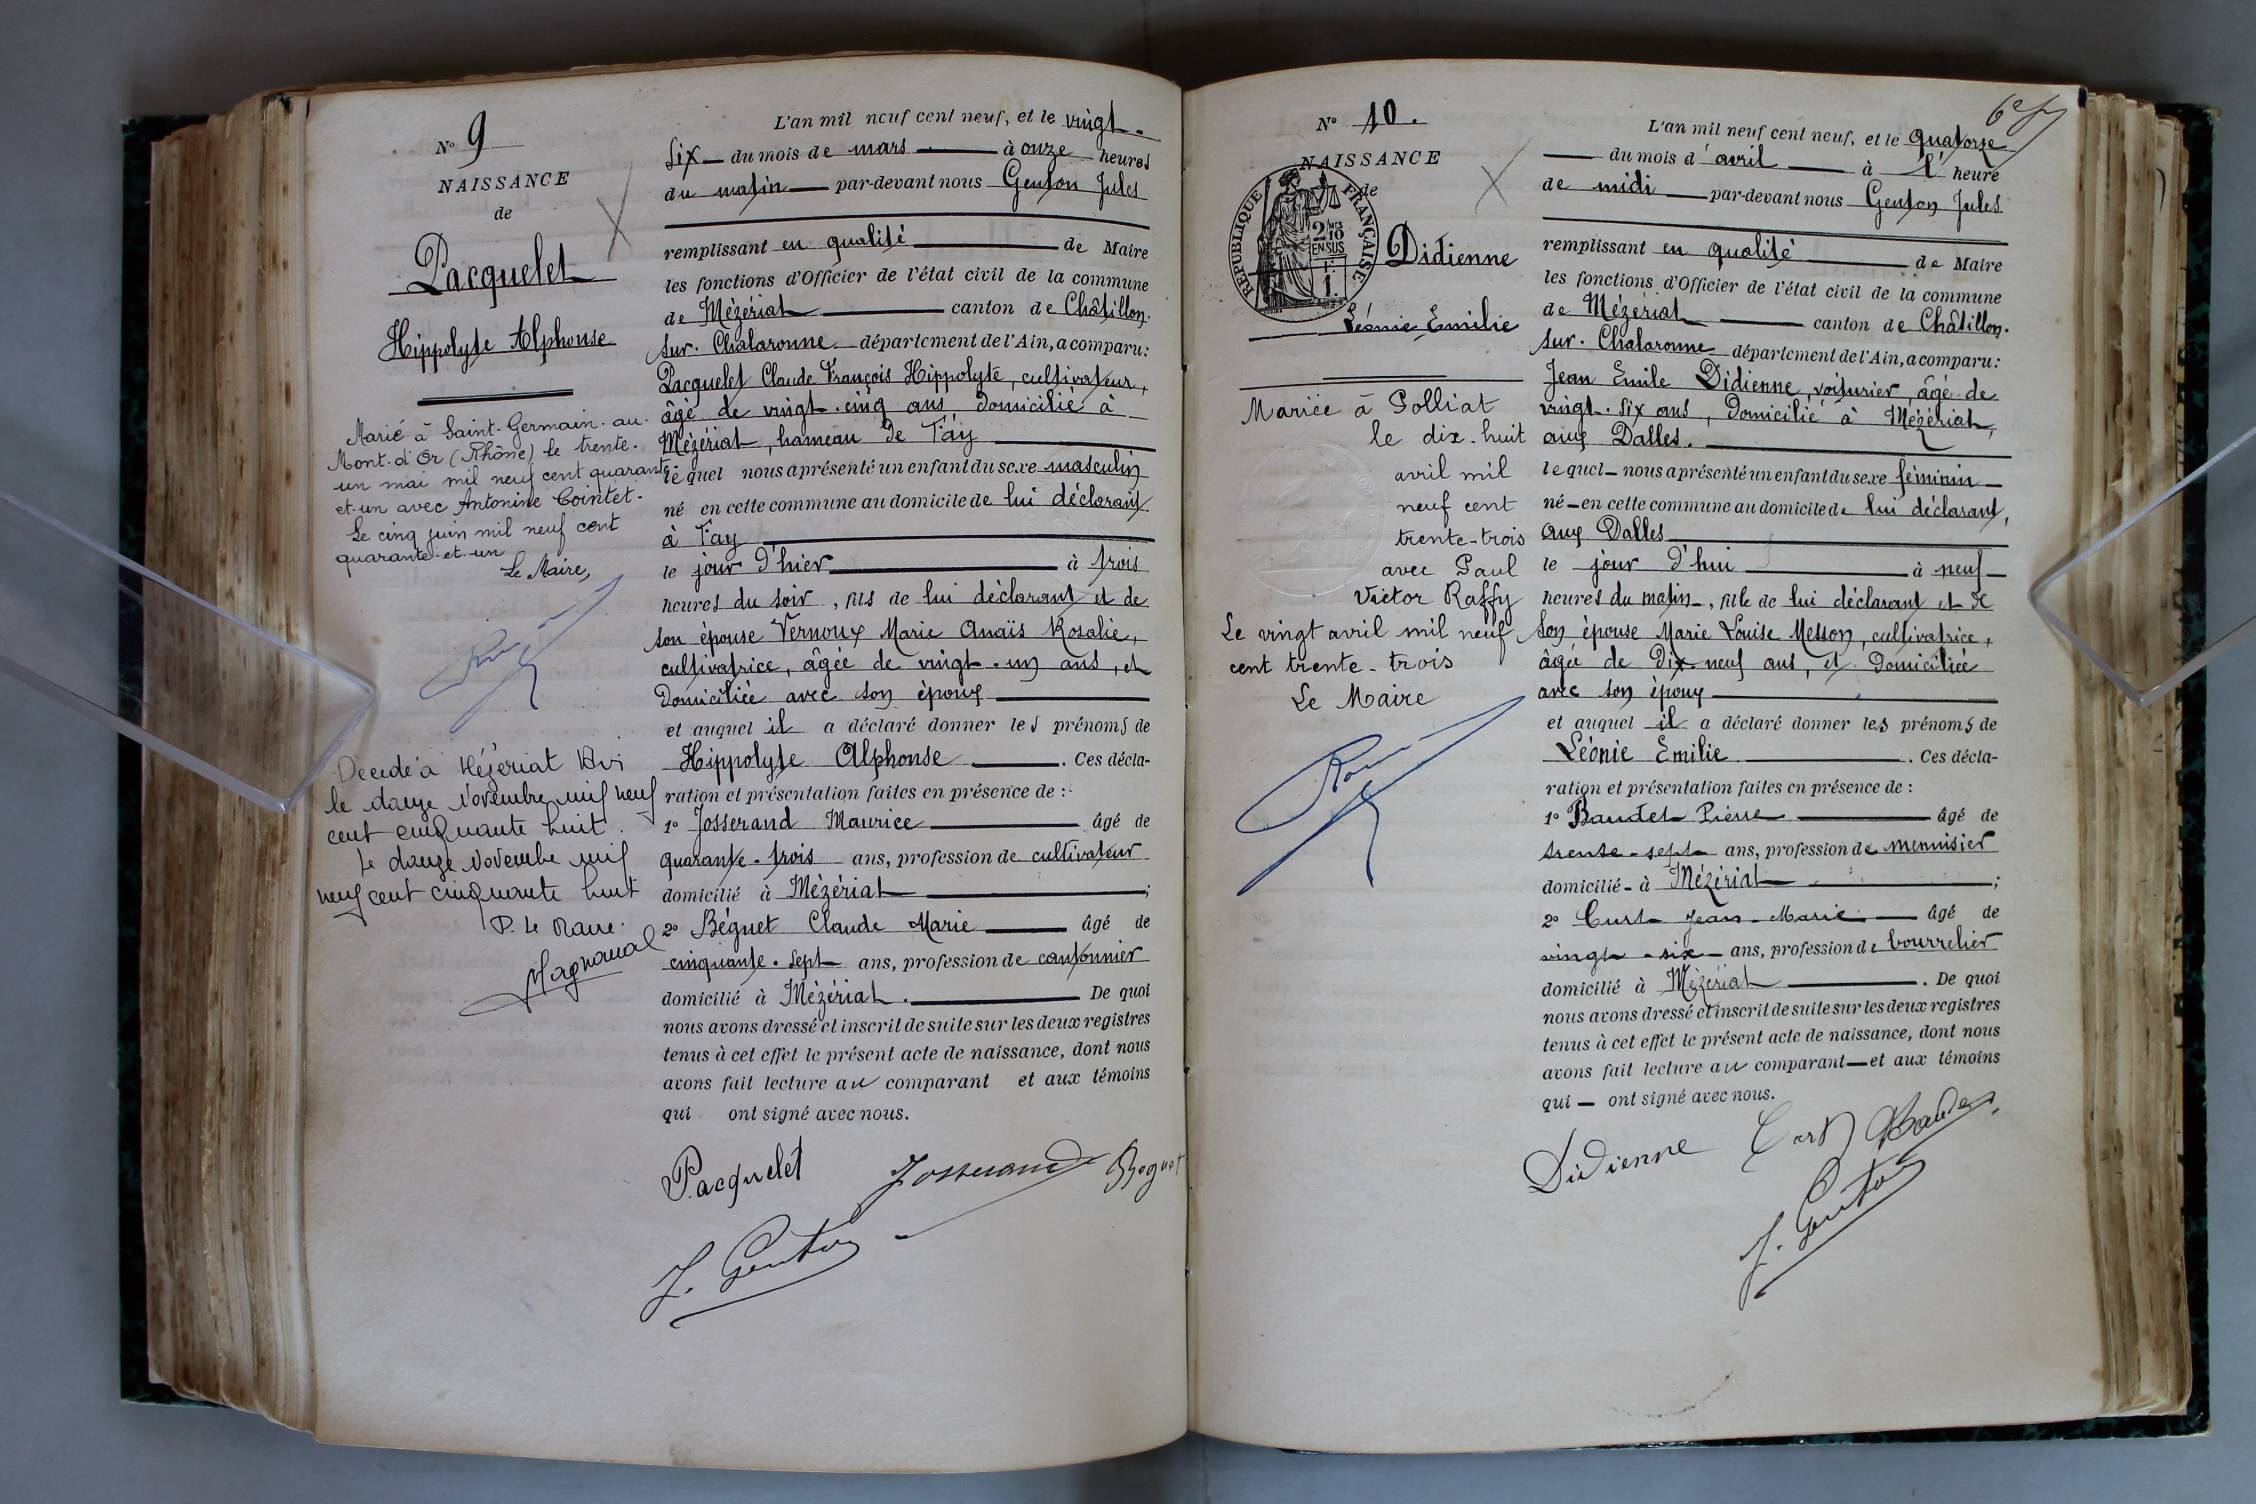 N° 9
NAISSANCE
de
Pacquelet
Hippolyte Alphonse
Marié à Saint-Germain-au-
Mont-d'Or (Rhône) le trente-
un mai mil neuf cent quarante-
et-un avec Antonine Cointet.
Le cinq juin mil neuf cent
quarante-et-un
Le Maire,
Décédé à Mézériat
le douze Novembre mil neuf
cent cinquante huit.
Le douze Novembre mil
neuf cent cinquante huit
P. Le Maire.
L'an mil neuf cent neuf, et le vingt-
six du mois de mars à onze heures
du matin par-devant nous Genton Jules
remplissant en qualité de Maire
les fonctions d'Officier de l'état civil de la commune
de Mézériat canton de Châtillon-
sur-Chalaronne département de l'Ain, a comparu:
Pacquelet Claude François Hippolyte, cultivateur,
âgé de vingt-cinq ans, domicilié à
Mézériat, hameau de Fay
lequel nous a présenté un enfant du sexe masculin
né en cette commune au domicile de lui déclarant
à Fay
le jour d'hier à trois
heures du soir, fils de lui déclarant et de
son épouse Vernoux Marie Anaïs Rosalie,
cultivatrice, âgée de vingt-un ans, et
domiciliée avec son époux
et auquel il a déclaré donner les prénoms de
Hippolyte Alphonse. Ces décla-
ration et présentation faites en présence de :
1° Josserand Maurice âgé de
quarante-trois ans, profession de cultivateur
domicilié à Mézériat ;
2° Béguet Claude Marie âgé de
cinquante-sept ans, profession de cantonnier
domicilié à Mézériat. De quoi
nous avons dressé et inscrit de suite sur les deux registres
tenus à cet effet le présent acte de naissance, dont nous
avons fait lecture au comparant et aux témoins
qui ont signé avec nous.
Pacquelet Josserand Beguet
J. Genton
6e f
N° 10.
NAISSANCE
de
REPUBLIQUE FRANÇAISE
2/10 EN SUS
1 F.
Didienne
Léonie Emilie
Mariée à Polliat
le dix-huit
avril mil
neuf cent
trente-trois
avec Paul
Victor Raffy
Le vingt avril mil neuf
cent trente-trois
Le Maire
L'an mil neuf cent neuf, et le quatorze
du mois d'avril à l' heure
de midi par-devant nous Genton Jules
remplissant en qualité de Maire
les fonctions d'Officier de l'état civil de la commune
de Mézériat canton de Châtillon-
sur-Chalaronne département de l'Ain, a comparu:
Jean Emile Didienne, voiturier, âgé de
vingt-six ans, domicilié à Mézériat,
aux Dalles.
lequel nous a présenté un enfant du sexe féminin
né en cette commune au domicile de lui déclarant,
aux Dalles
le jour d'hui à neuf
heures du matin, fille de lui déclarant et de
son épouse Marie Louise Messon, cultivatrice,
âgée de dix-neuf ans, et domiciliée
avec son époux
et auquel il a déclaré donner les prénoms de
Léonie Emilie. Ces décla-
ration et présentation faites en présence de :
1° Baudet Pierre âgé de
trente-sept ans, profession de menuisier
domicilié à Mézériat ;
2° Curt Jean-Marie âgé de
vingt-six ans, profession de bourrelier
domicilié à Mézériat. De quoi
nous avons dressé et inscrit de suite sur les deux registres
tenus à cet effet le présent acte de naissance, dont nous
avons fait lecture au comparant et aux témoins
qui ont signé avec nous.
Didienne Curt Baudet
J. Genton